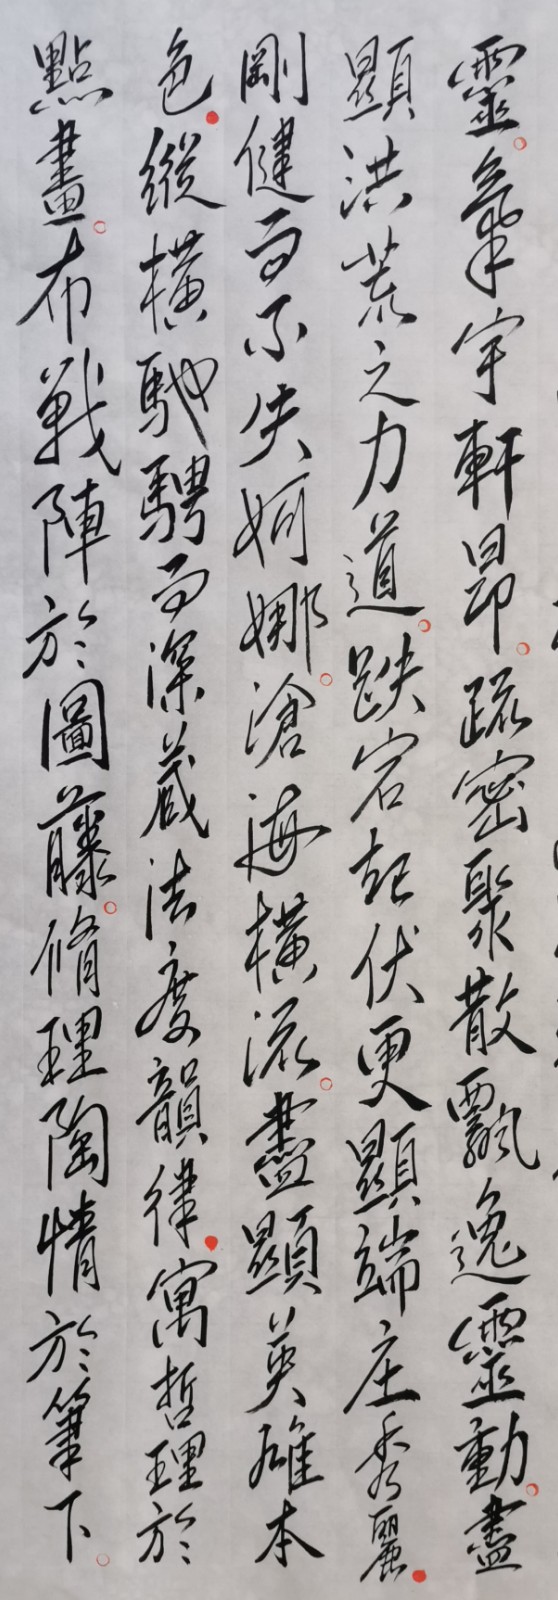 靈。氣宇軒昂。疏密聚散飄逸靈動。盡
顯洪荒之力道。跌宕起伏更顯端庄秀麗
剛健而不失婀娜。滄海橫流。盡顯英雄本
色。縱橫馳騁而深藏法度韻律。寓哲理於
點畫。布戰陣於圖藤。脩理陶情於筆下。